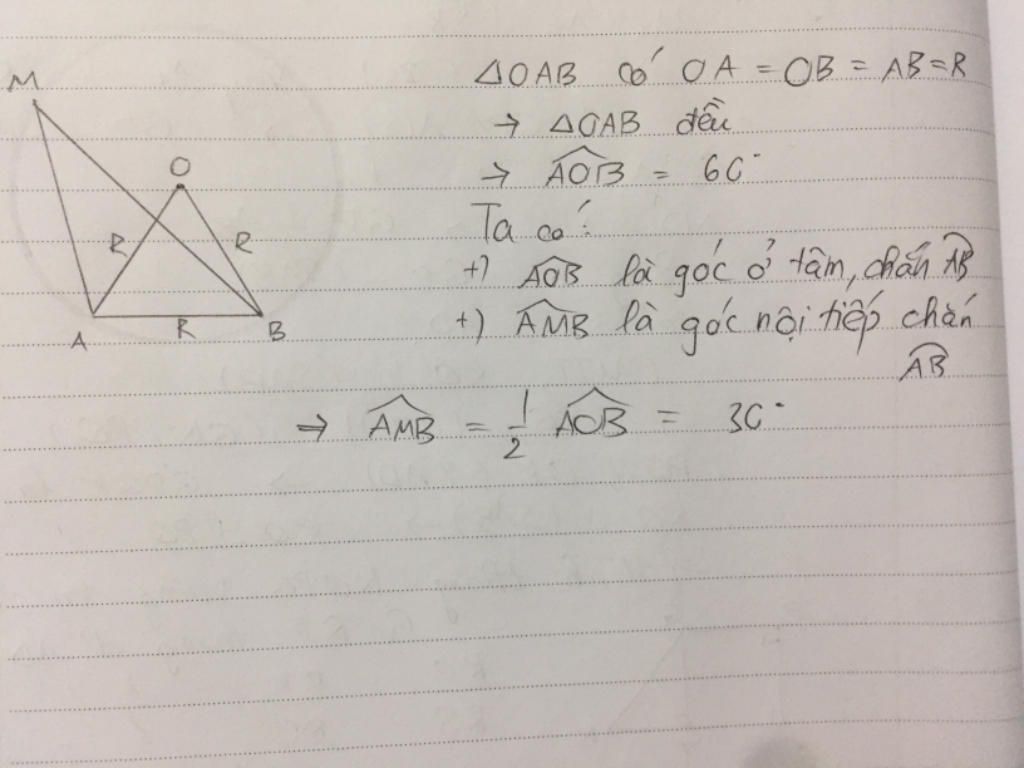 M
O
R
R
A
R
B
△OAB có OA = OB = AB = R
→ △OAB đều
→ \widehat{AOB} = 60°
Ta có:
+) \widehat{AOB} là góc ở tâm, chắn \overset{\frown}{AB}
+) \widehat{AMB} là góc nội tiếp chắn
\overset{\frown}{AB}
→ \widehat{AMB} = \frac{1}{2} \widehat{AOB} = 30°